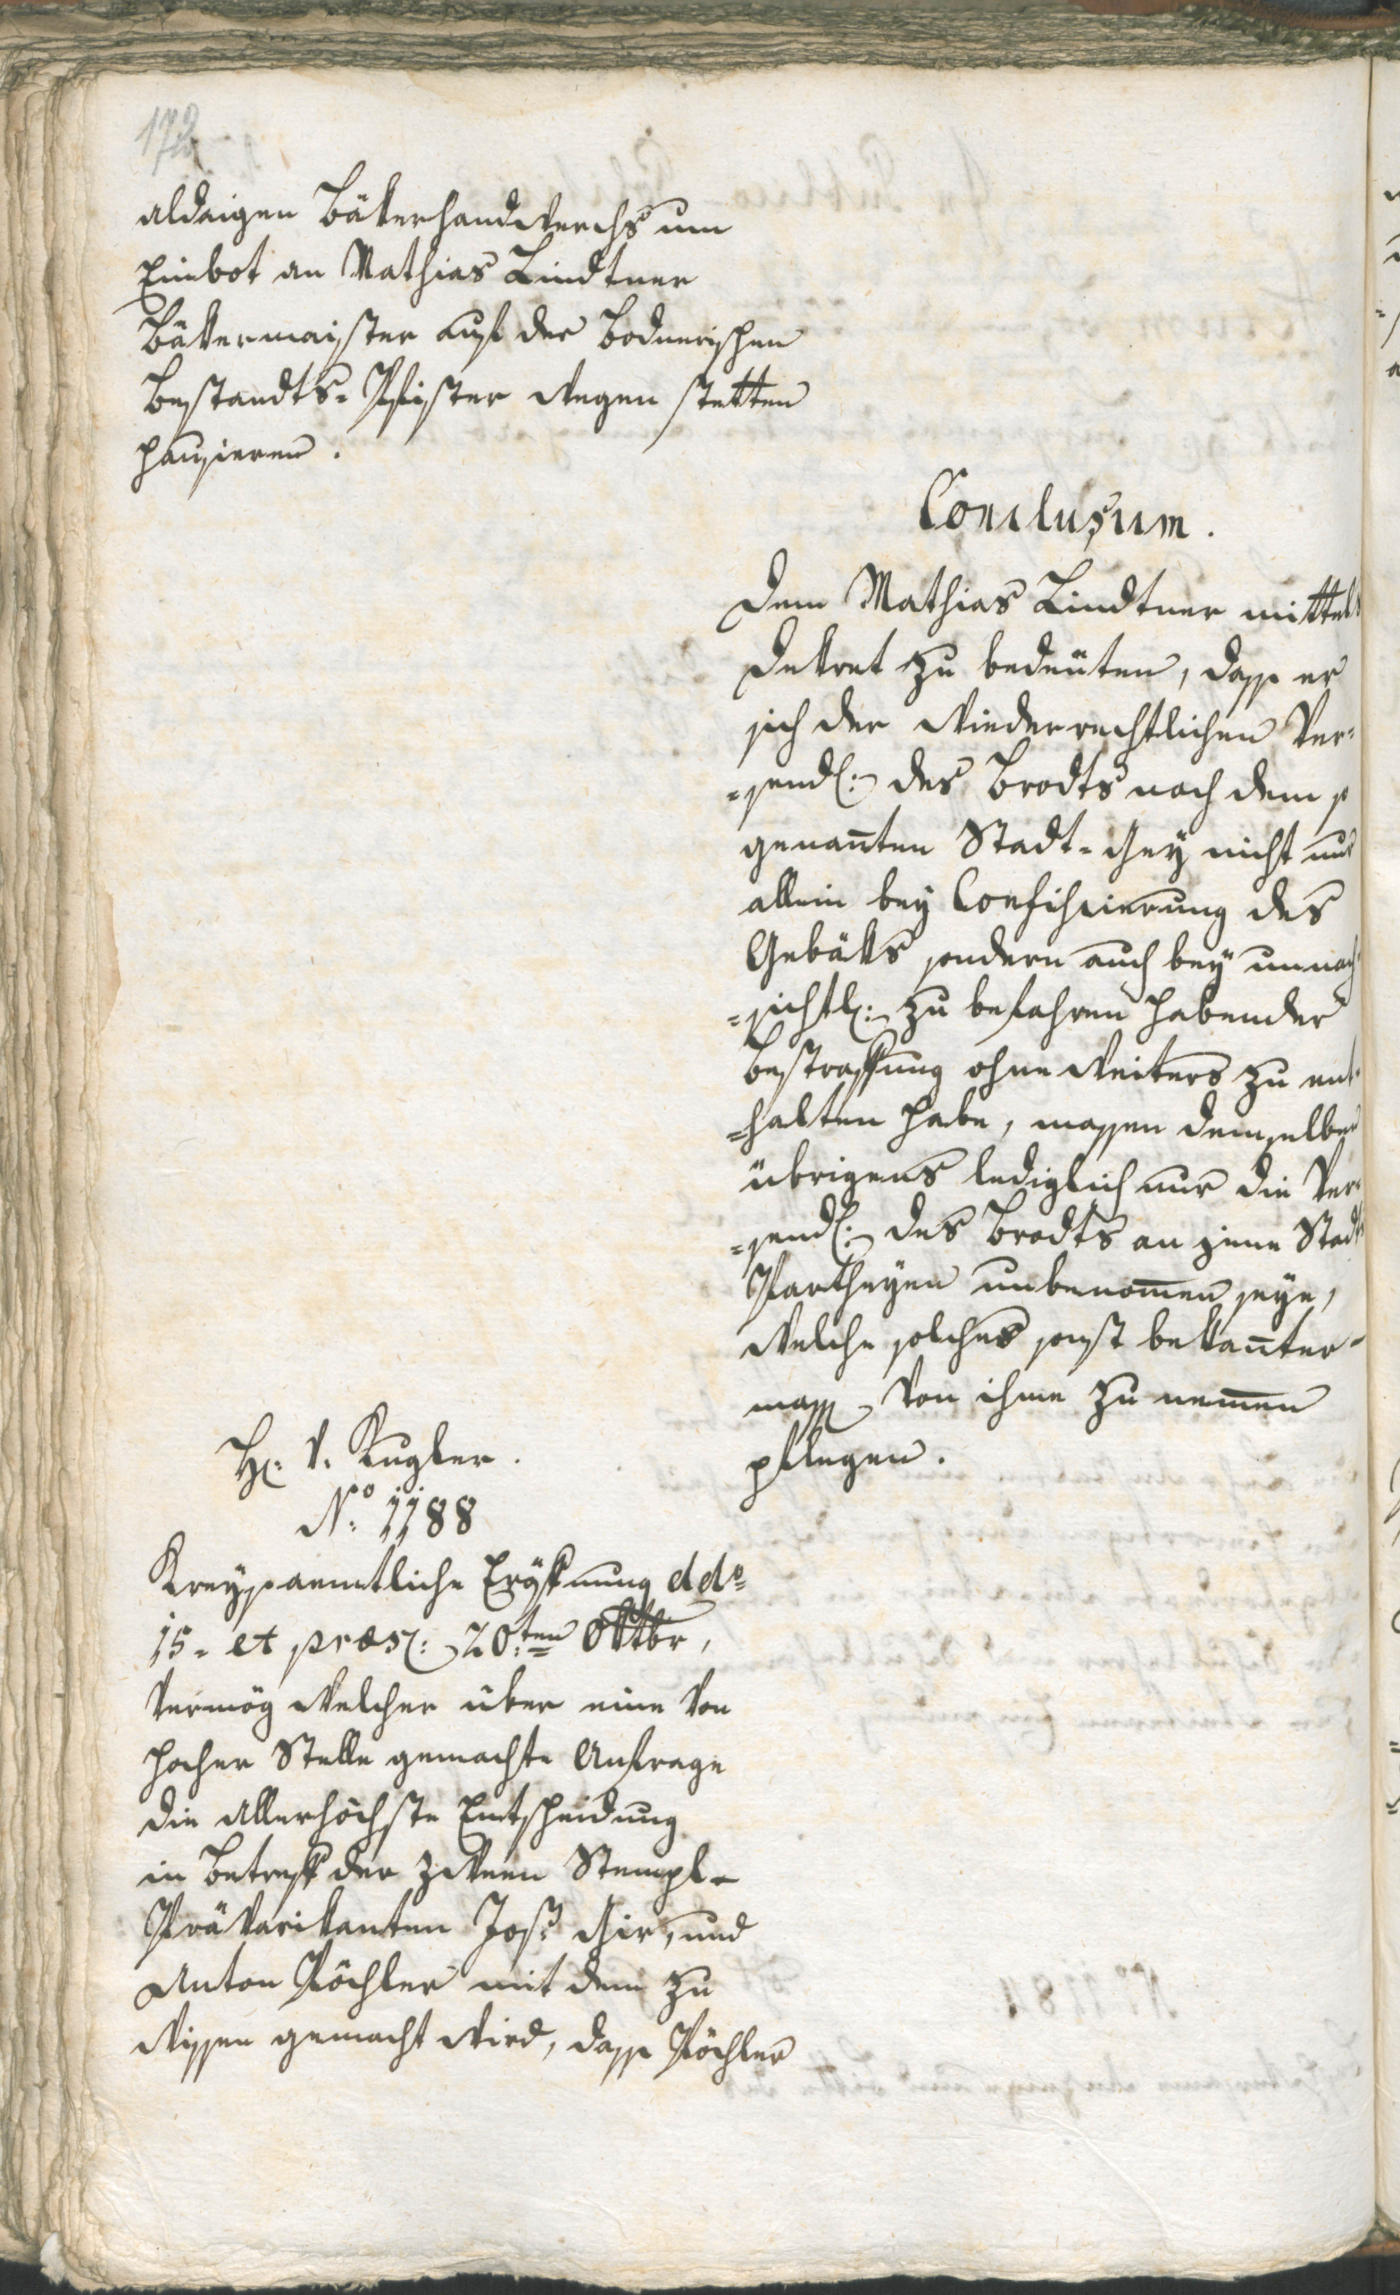 172
aldaigen Bäkerhandwerchs um
Einbot an Mathias Lindtner
Bäkermaister auf der Bodnerischen
Bestandts-Pfister wegen stetten
hausieren.
Conclusum.
Dem Mathias Lindtner mittels
Dekret zu bedeuten, dass er
sich der wiederrechtlichen Ver=
=send(: des Brodts nach dem so
genañten Stadt-Gey nicht nur
allein bey Confiscierung des
Gebäks sondern auch bey unnach
=sichtl: zu befahren habender
Bestraffung ohne weiters zu ent=
=halten habe, massen demselben
übrigens lediglich nur die Ver=
=send(: des Brodts an jene Stadt
Partheyen unbenom̄en seye,
welche solches sonst bekañter=
mass von ihme zu nem̄en
pflegen.
H: v. Kugler.
No: 1188
Kreyssaemtliche Eröffnung ddo
15. et præs: 20:ten Oktbr,
vermög welcher über eine von
hocher Stelle gemachte Anfrage
die allerhöchste Entscheidung
in Betreff der zween Stempl-
Prävarikanten Jos: Gir, und
Anton Pöchler mit dem zu
wissen gemacht wird, dass Pöchler